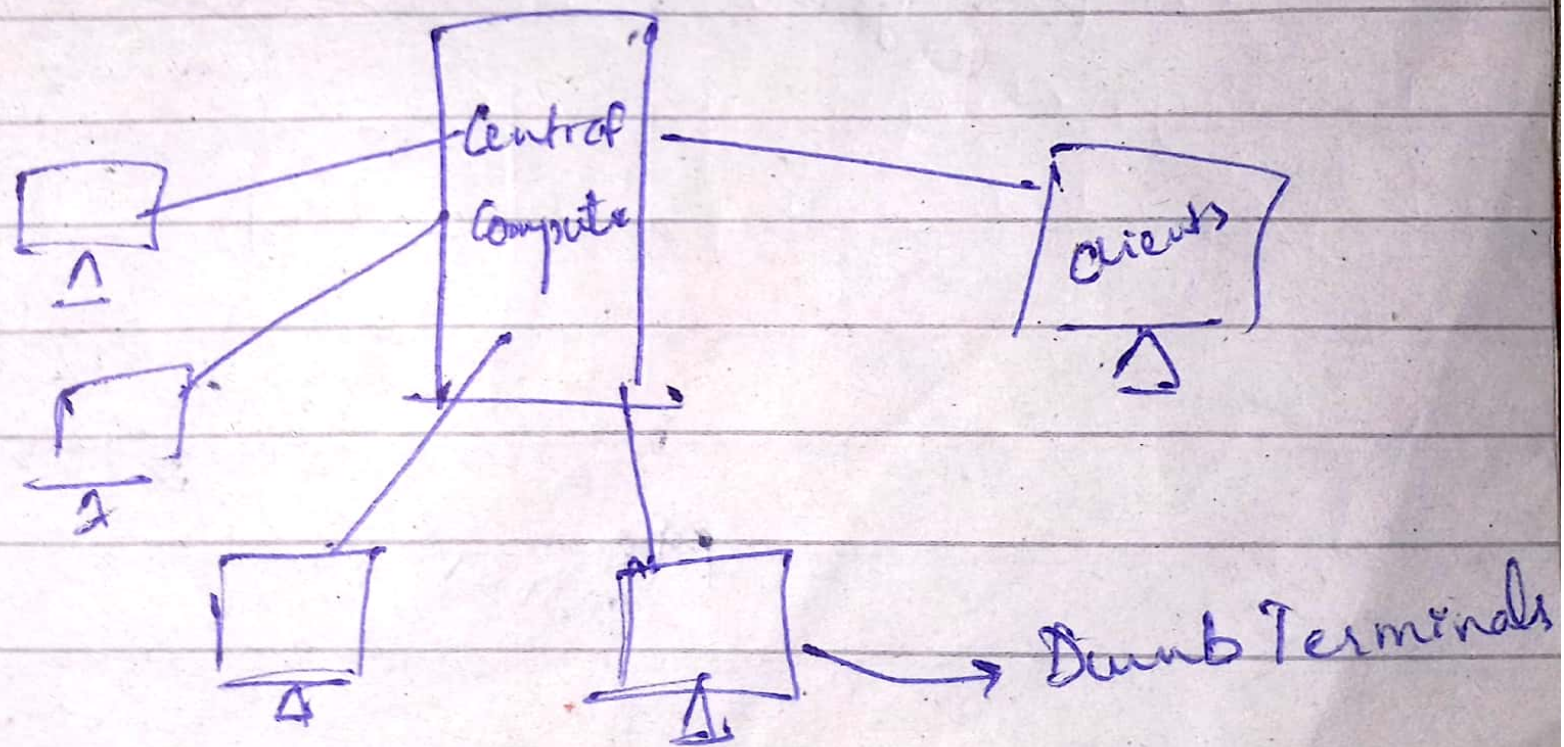 Central
Computer
clients
Dumb Terminals